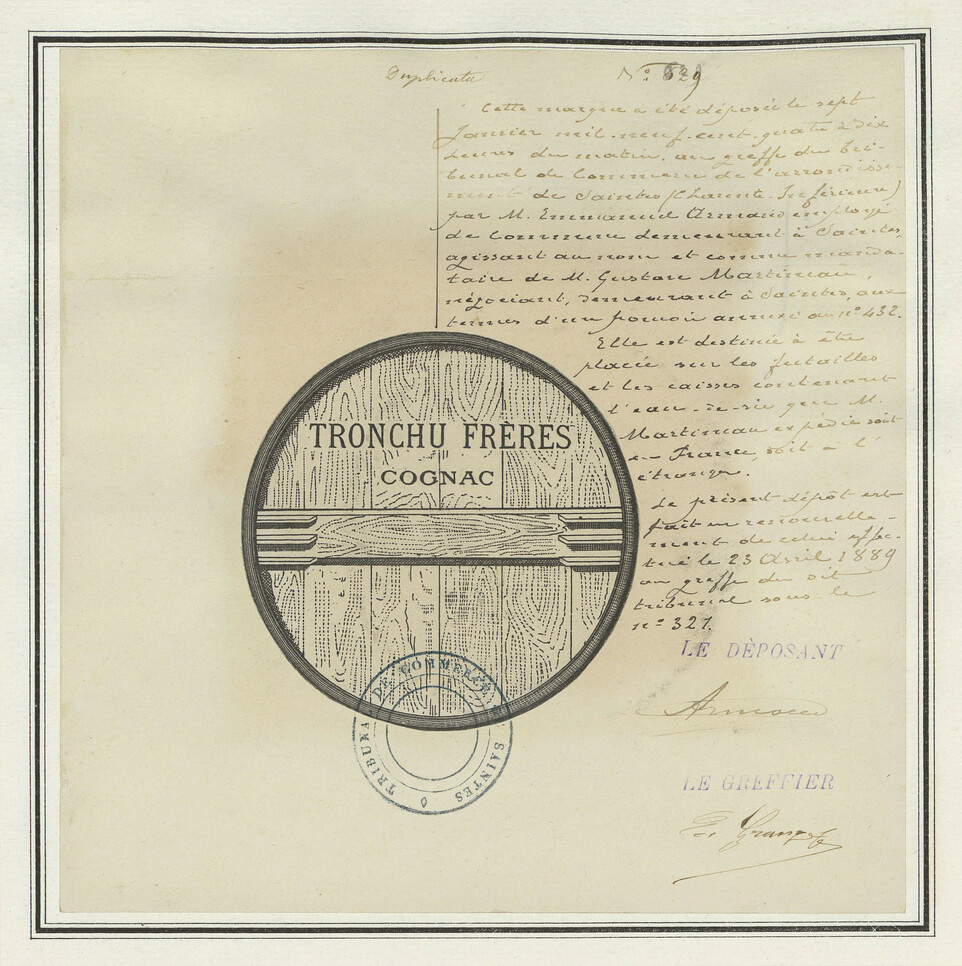 Duplicata
N° 829
Cette marque a été déposée le sept
Janvier mil-neuf-cent-quatre à dix
heures du matin, au greffe du Tri-
bunal de Commerce de l'arrondisse-
ment de Saintes (Charente-Inférieure)
par M. Emmanuel Armand employé
de Commerce demeurant à Saintes,
agissant au nom et comme manda-
taire de M. Gustave Martineau,
négociant, demeurant à Saintes, aux
termes d'un pouvoir annexé au n° 432.
Elle est destinée à être
placée sur les futailles
et les caisses contenant
l'eau-de-vie que M.
Martineau expédie soit
en France, soit à l'
étranger.
Le présent dépôt est
fait en renouvelle-
ment de celui effec-
tué le 23 Avril 1889
au greffe du dit
tribunal sous le
n° 321.
TRONCHU FRÈRES
COGNAC
LE DÉPOSANT
TRIBUNAL DE COMMERCE DE SAINTES
LE GREFFIER